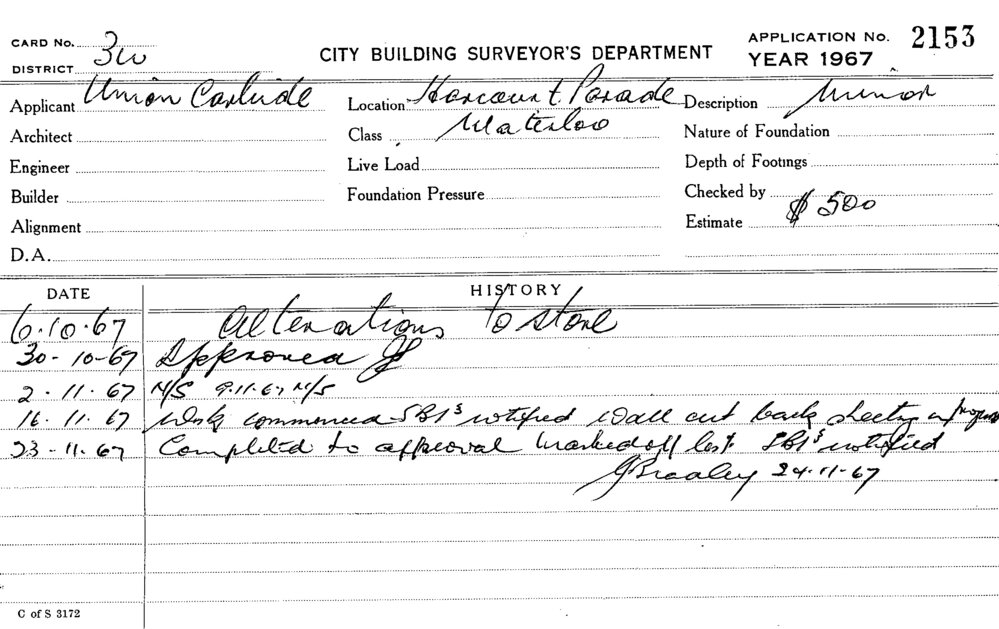 CARD No. 3W
CITY BUILDING SURVEYOR'S DEPARTMENT
APPLICATION No. 2153
DISTRICT
YEAR 1967
Applicant Union Carbide Location Harcourt Parade Description Minor
Architect Class Waterloo Nature of Foundation
Engineer Live Load Depth of Footings
Builder Foundation Pressure Checked by
Alignment Estimate $500
D.A.
DATE HISTORY
6.10.67 Alterations to store
30-10-67 Approved
2.11.67 N/S 9.11.67 N/S
16.11.67 Work commenced SBIs notified Wall cut back sheeting in progress
23-11-67 Completed to approval Marked off list SBIs notified
JBradley 24-11-67
C of S 3172